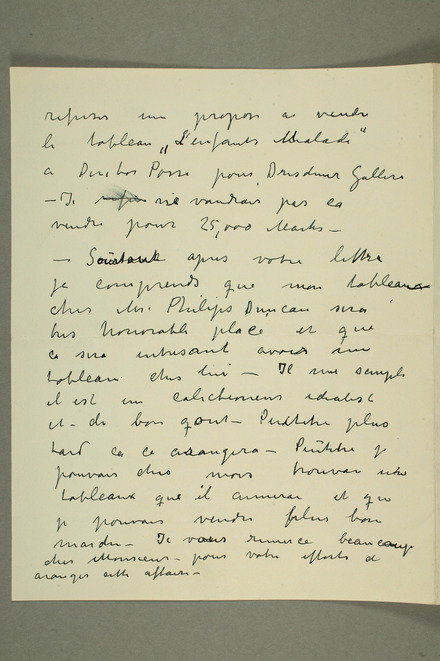 refuser un propos a vendr
le tableau „L'enfants Malade"
a Direktor Posse pour Dresdner Galleri
— Je refu ne vaudrais pas ca
vendre pour 25,000 Marks —
— Surtout apres votre lettre
je comprends que mon tableaux
ches Mr. Philips Duncan sera
tres honorable placé et que
ca sera intresant avoir un
tableau ches lui — Il me sempl
il est un collectioneur idealist
et de bon gout — Peutetre plus
tard ca ce arangera — Peutetre je
pouvais ches mois trouvar une
tableaux que il aimerai et que
je pouvais vendre plus bon
marche — Je vous remerce beaucoup
cher Monsieur — pour votre efforts d
aranger cette affaire —